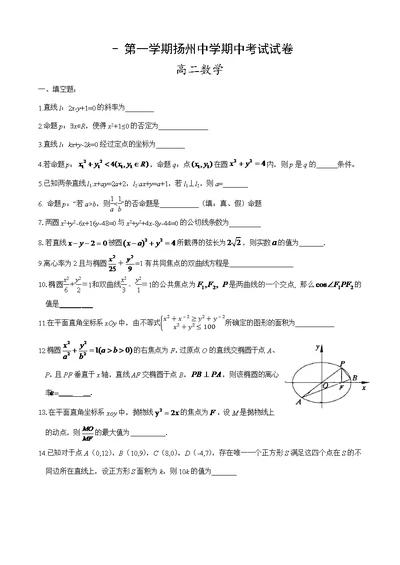 - 第一学期扬州中学期中考试试卷
高二数学
一、填空题:
1.直线 l: 2x-y+1=0的斜率为
2.命题 p: ∃x∈R, 使得 x²+1≤0 的否定为
3.直线 l: kx+y-2k=0 经过定点的坐标为
4.若命题 p: x₁²+y₁²<4(x₁,y₁∈R), 命题 q: 点(x₁,y₁)在圆 x²+y²=4 内, 则 p 是 q 的 条件。
5.已知两条直线 l₁:x+ay=2a+2, l₂:ax+y=a+1, 若 l₁⊥l₂, 则 a=
6. 命题 p: “若 a>b, 则 1/a<1/b”的否命题是 (填: 真、假) 命题
7.两圆 x²+y²-6x+16y-48=0 与 x²+y²+4x-8y-44=0 的公切线条数为
8.若直线 x-y-2=0 被圆(x-a)²+y²=4 所截得的弦长为 2√2, 则实数 a 的值为 .
9.离心率为 2 且与椭圆 x²/25+y²/9=1 有共同焦点的双曲线方程是
10.椭圆 x²/6+y²/2=1 和双曲线 x²/3-y²/1=1 的公共焦点为 F₁,F₂, P 是两曲线的一个交点, 那么 cos∠F₁PF₂ 的
值是
11.在平面直角坐标系 xOy 中, 由不等式{x²+x⁻²≥y²+y⁻² x²+y²≤100 所确定的图形的面积为
12.椭圆 x²/a²+y²/b²=1(a>b>0)的右焦点为 F, 过原点 O 的直线交椭圆于点 A、
P, 且 PF 垂直于 x 轴, 直线 AF 交椭圆于点 B, PB⊥PA, 则该椭圆的离心
率e= .
y
P
B
O
F
x
A
13.在平面直角坐标系 xoy 中, 抛物线 y²=2x 的焦点为 F, 设 M 是抛物线上
的动点, 则 MO/MF 的最大值为 .
14.已知对于点 A(0,12), B(10,9), C(8,0), D(-4,7), 存在唯一一个正方形 S 满足这四个点在 S 的不
同边所在直线上, 设正方形 S 面积为 k, 则 10k 的值为